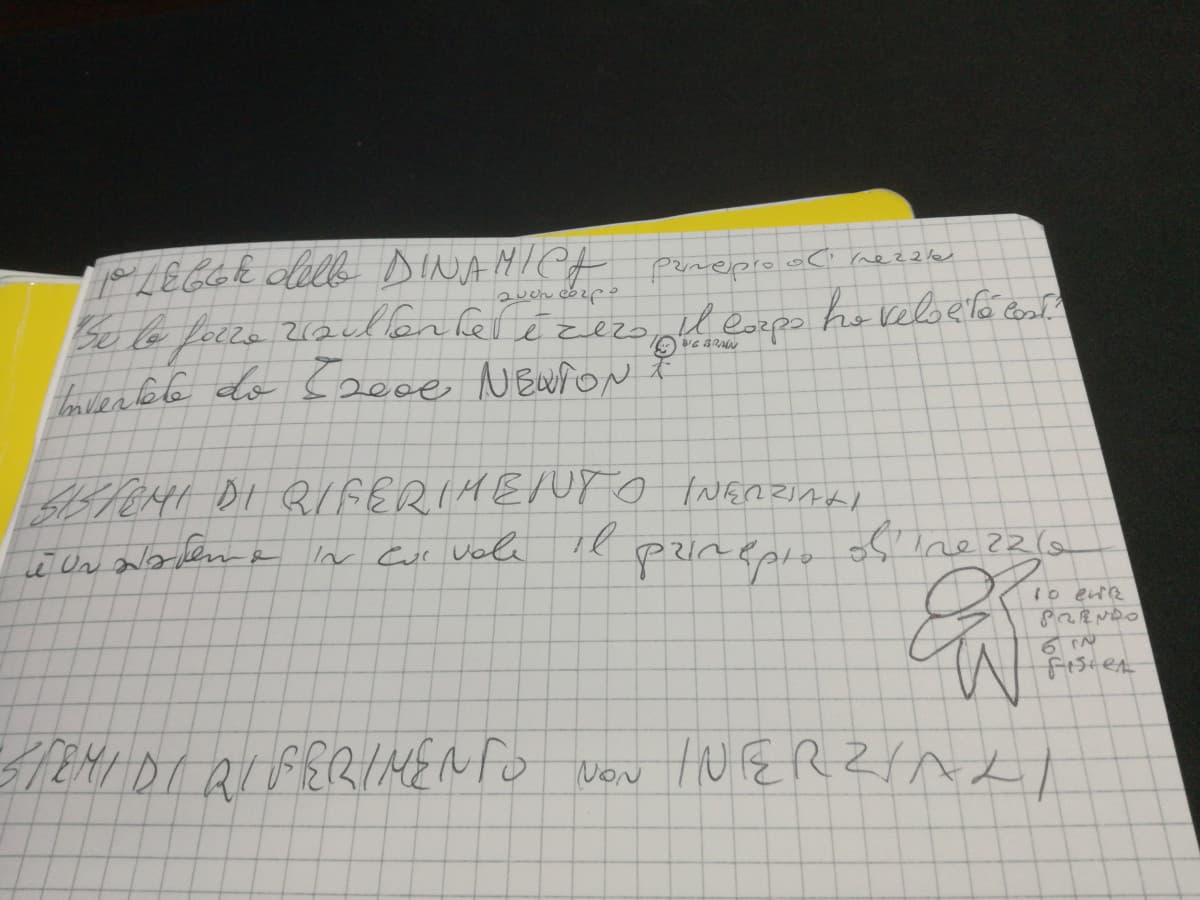 1° LEGGE della DINAMICA principio d'inerzia
su un corpo
"Se la forza risultante è zero, il corpo ha velocità cost."
BIG BRAIN
Inventata da Isaac NEWTON
SISTEMI DI RIFERIMENTO INERZIALI
è un sistema in cui vale il principio d'inerzia
IO CHE
PRENDO
6 IN
FISICA
SISTEMI DI RIFERIMENTO NON INERZIALI